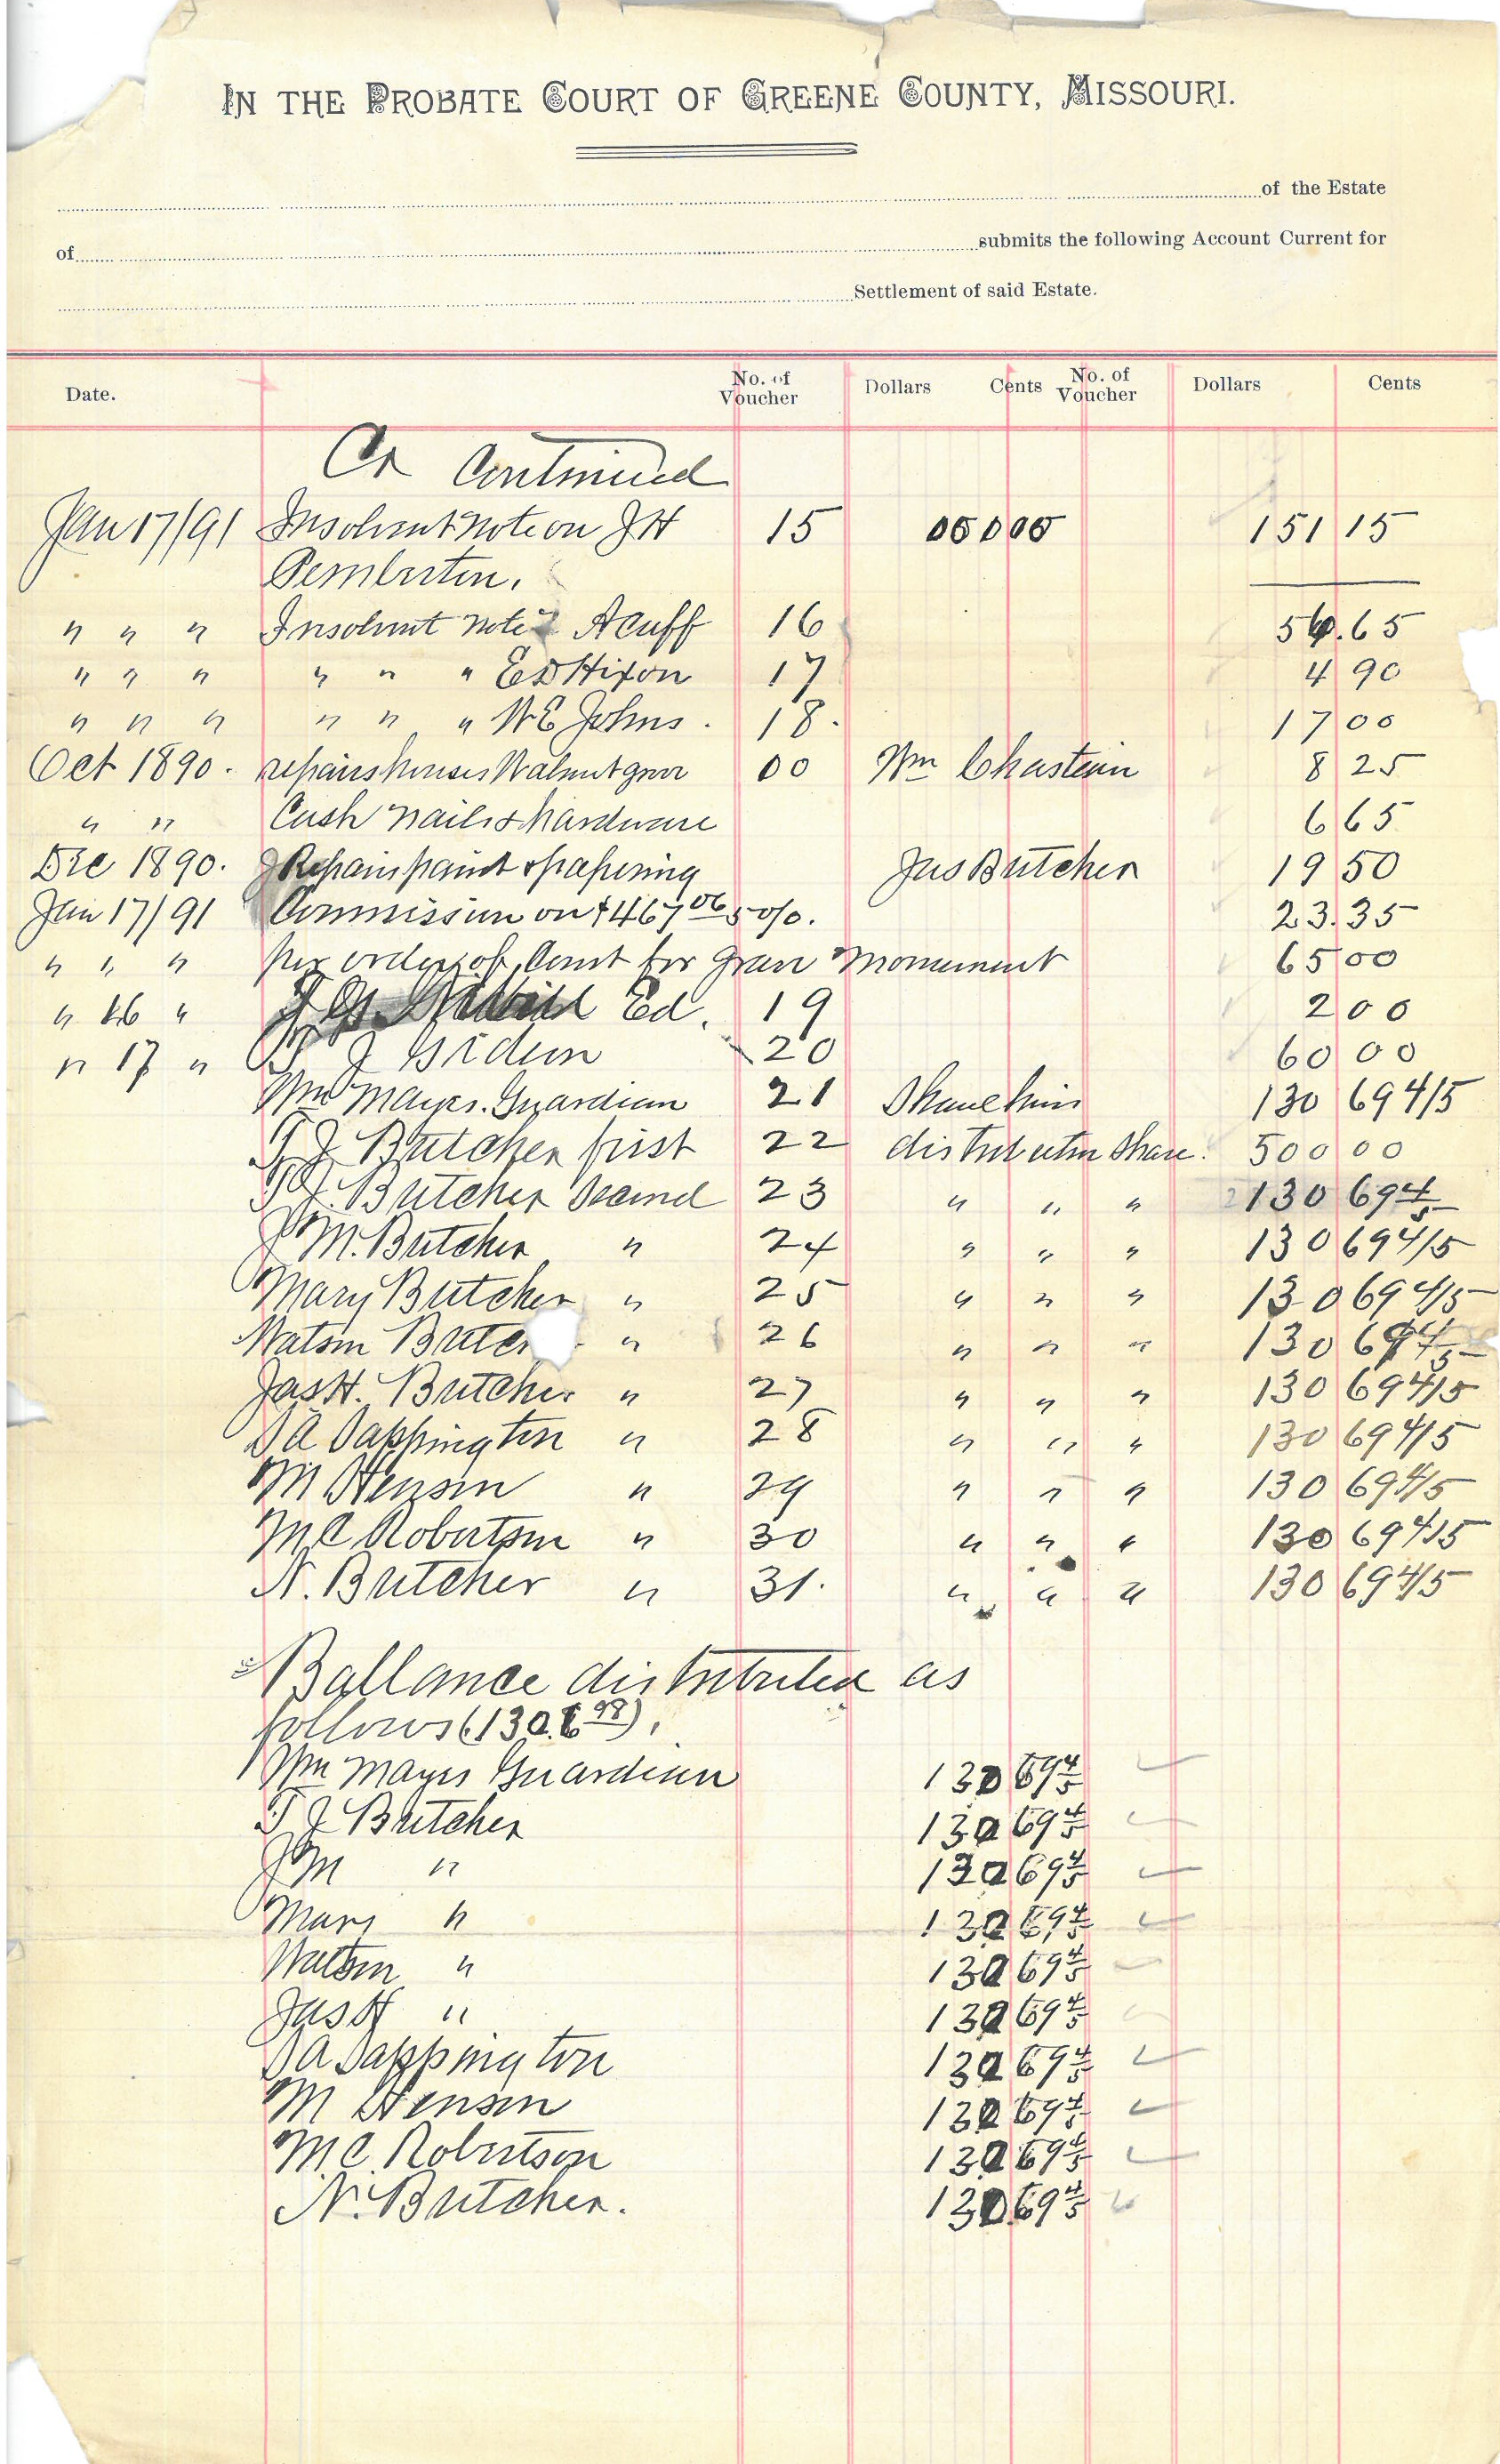 IN THE PROBATE COURT OF GREENE COUNTY, MISSOURI.
of the Estate
of submits the following Account Current for
Settlement of said Estate.
Date. No. of Voucher Dollars Cents No. of Voucher Dollars Cents
Cr Continued
Jan 17/91 Insolvent note on J H 15 151 15
Pemberton.
" " " Insolvent note " Acuff 16 .65
" " " " " " Ed Hixon 17 4 90
" " " " " " W E Johns. 18. 17 00
Oct 1890. repairs houses Walnut grove 00 Wm Chastain 8 25
" " Cash nails & hardware 6 65
Dec 1890. Repairs paint & papering Jas Butcher 19 50
Jan 17/91 Commission on $467 06 5%. 23.35
" " " per order of Court for grave monument 65 00
" 16 " Ed. 19 2 00
" 17 " T J Gideon 20 60 00
Wm Mayes. Guardian 21 130 69 4/5
T J Butcher first 22 distribution share. 500 00
T J. Butcher second 23 " " " 130 69 4/5
J M. Butcher " 24 " " " 130 69 4/5
Mary Butcher " 25 " " " 130 69 4/5
Watson Butc " 26 " " " 130 69 4/5
Jas H. Butcher " 27 " " " 130 69 4/5
S A Sappington " 28 " " " 130 69 4/5
M Henson " 29 " " " 130 69 4/5
M C Robertson " 30 " " " 130 69 4/5
N. Butcher " 31. " " " 130 69 4/5
Ballance distributed as
follows (1306 98).
Wm Mayes Guardian 130 69 4/5
T J Butcher 130 69 4/5
J M " 130 69 4/5
Mary " 130 69 4/5
Watson " 130 69 4/5
Jas H " 130 69 4/5
S A Sappington 130 69 4/5
M Henson 130 69 4/5
M C. Robertson 130 69 4/5
N. Butcher. 130 69 4/5